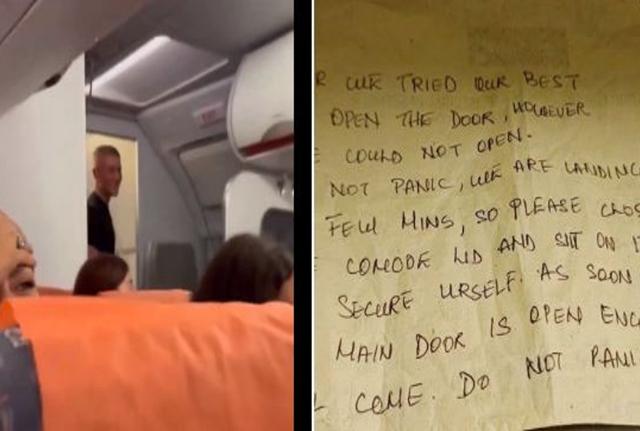 R WE TRIED OUR BEST
OPEN THE DOOR, HOWEVER
E COULD NOT OPEN.
NOT PANIC, WE ARE LANDING
FEW MINS, SO PLEASE CLOS
COMODE LID AND SIT ON I
SECURE URSELF. AS SOON
MAIN DOOR IS OPEN ENG
L COME. DO NOT PANI